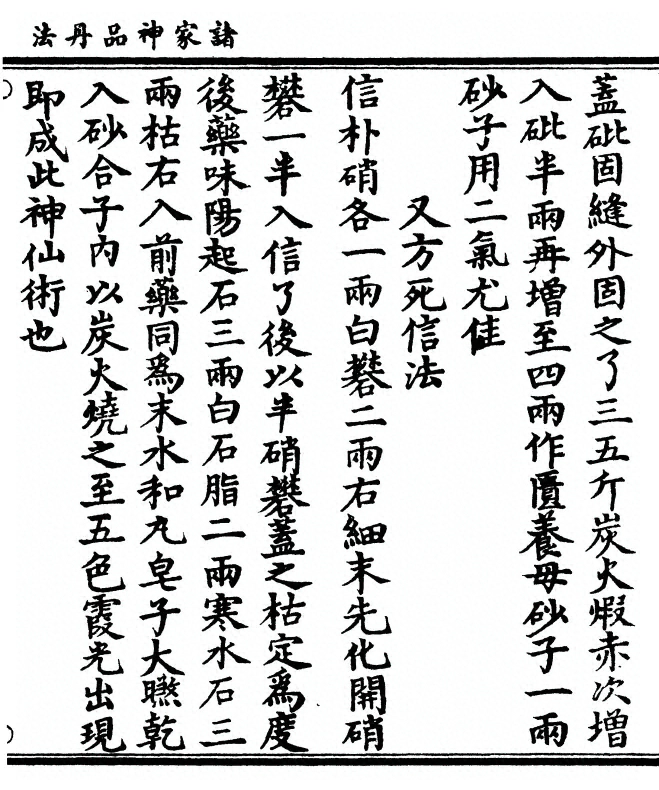 諸家神品丹法
蓋砒固縫外固之了三五斤炭火煆赤次增
入砒半兩再增至四兩作匱養母砂子一兩
砂子用二氣尤佳
又方死信法
信朴硝各一兩白礬二兩右細末先化開硝
礬一半入信了後以半硝礬蓋之枯定爲度
後藥味陽起石三兩白石脂二兩寒水石三
兩枯右入前藥同爲末水和丸皂子大㬠乾
入砂合子內以炭火燒之至五色霞光出現
即成此神仙術也